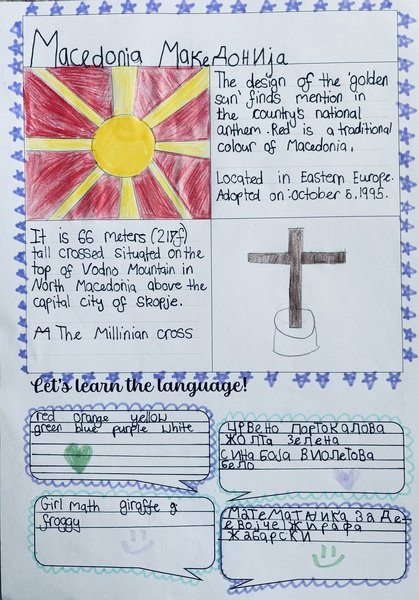 Macedonia Македонија
The design of the 'golden
sun' finds mention in
the country's national
anthem. Red is a traditional
colour of Macedonia.
Located in Eastern Europe.
Adopted on: October 5, 1995.
It is 66 meters (217f)
tall crossed situated on the
top of Vodno Mountain in
North Macedonia above the
capital city of Skopje.
The Millinian cross
Let's learn the language!
red orange yellow
green blue purple white
црвено портокалова
жолта зелена
сина боја виолетова
бело
Girl math giraffe
froggy
Математика за де-
војче жирафа
жабарски